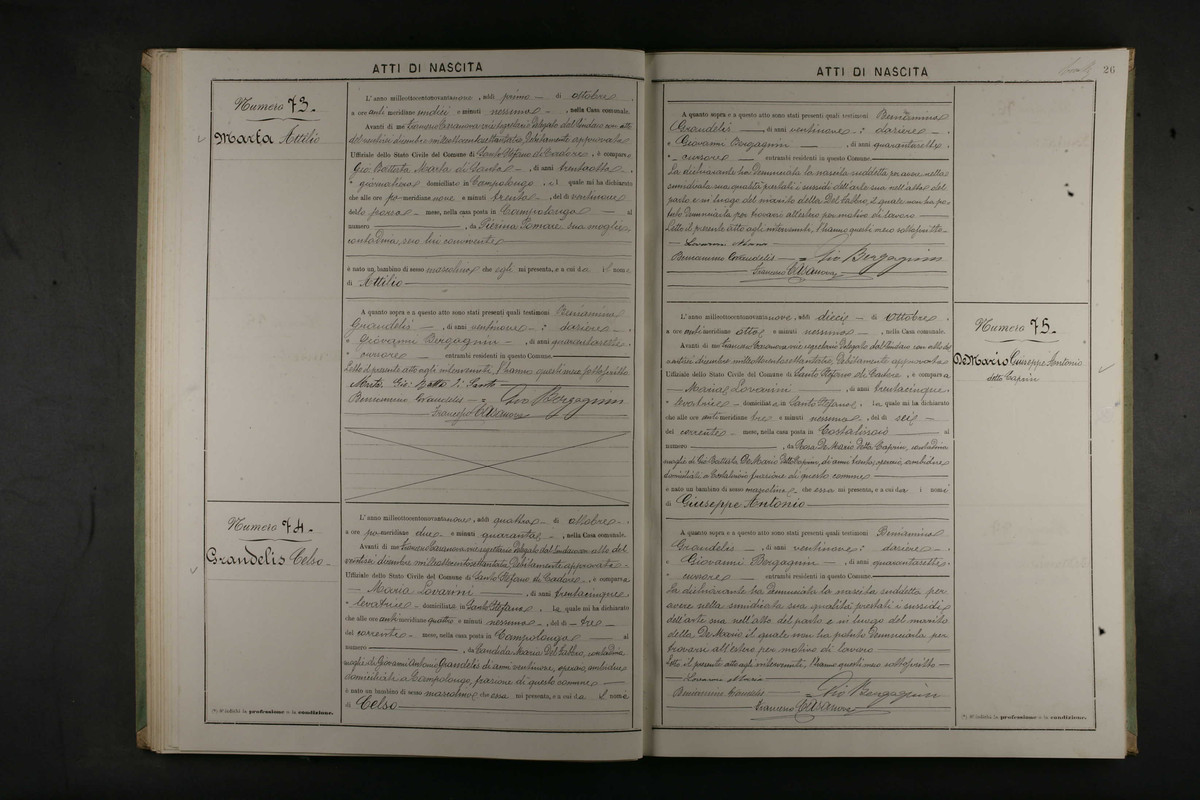 ATTI DI NASCITA
Numero 73.
Marta Attilio
L'anno milleottocentonovantanove, addì primo di ottobre,
a ore anti meridiane undici e minuti nessuno, nella Casa comunale.
Avanti di me Francesco Casanova vice segretario Delegato dal Sindaco con atto
del ventisei dicembre milleottocentosettantotto, debitamente approvato
Uffiziale dello Stato Civile del Comune di Santo Stefano di Cadore, è comparso
Gio: Battista Marta di Santo, di anni trentaotto,
giornaliero domiciliato in Campolongo, il quale mi ha dichiarato
che alle ore po meridiane nove e minuti trenta, del dì ventinove
dello scorso mese, nella casa posta in Campolongo al
numero, da Pierina Pomarè sua moglie
contadina, seco lui convivente
è nato un bambino di sesso mascolino che egli mi presenta, e a cui dà il nome
di Attilio
A quanto sopra e a questo atto sono stati presenti quali testimoni Beniamino
Grandelis, di anni ventinove, daziere,
e Giovanni Bergagnin, di anni quarantasette,
cursore, entrambi residenti in questo Comune.
Letto il presente atto agli intervenuti, l'hanno questi meco sottoscritto
Marta Gio: Batta di Santo
Beniamino Grandelis Gio Bergagnin
Francesco Casanova
Numero 74.
Grandelis Celso
L'anno milleottocentonovantanove, addì quattro di ottobre,
a ore pomeridiane due e minuti quaranta, nella Casa comunale.
Avanti di me Francesco Casanova vice segretario Delegato dal Sindaco con atto del
ventisei dicembre milleottocentosettantotto, debitamente approvato
Uffiziale dello Stato Civile del Comune di Santo Stefano di Cadore, è comparsa
Maria Lovarini, di anni trentacinque,
levatrice domiciliata in Santo Stefano, la quale mi ha dichiarato
che alle ore antimeridiane quattro e minuti nessuno, del dì tre
del corrente mese, nella casa posta in Campolongo al
numero, da Candida Maria Del Fabbro, contadina
moglie di Giovanni Antonio Grandelis di anni ventinove, operaio, ambidue
domiciliati a Campolongo, frazione di questo comune
è nato un bambino di sesso mascolino che essa mi presenta, e a cui dà il nome
di Celso
(*) Si indichi la professione o la condizione.
ATTI DI NASCITA
26
A quanto sopra e a questo atto sono stati presenti quali testimoni Beniamino
Grandelis, di anni ventinove, daziere,
e Giovanni Bergagnin, di anni quarantasette,
cursore, entrambi residenti in questo Comune.
La dichiarante ha denunciata la nascita suddetta per avere nella
sunndicata sua qualità prestati i sussidi dell'arte sua nell'atto del
parto e in luogo del marito della Del Fabbro, il quale non ha po-
tuto denunciarla per trovarsi all'estero per motivo di lavoro
Letto il presente atto agli intervenuti, l'hanno questi meco sottoscritto
Lovarini Maria
Beniamino Grandelis Gio Bergagnin
Francesco Casanova
Numero 75.
De Mario Giuseppe Antonio
detto Caprin
L'anno milleottocentonovantanove, addì dieci di ottobre,
a ore antimeridiane otto e minuti nessuno, nella Casa comunale.
Avanti di me Francesco Casanova vice segretario Delegato dal Sindaco con atto del
ventisei dicembre milleottocentosettantotto, debitamente approvato
Uffiziale dello Stato Civile del Comune di Santo Stefano di Cadore, è comparsa
Maria Lovarini, di anni trentacinque,
levatrice domiciliata in Santo Stefano, la quale mi ha dichiarato
che alle ore antimeridiane tre e minuti nessuno, del dì sei
del corrente mese, nella casa posta in Costalissoio al
numero, da Rosa De Mario detta Caprin, contadina
moglie di Gio: Battista De Mario detto Caprin, di anni trenta, operaio, ambidue
domiciliati a Costalissoio frazione di questo comune
è nato un bambino di sesso mascolino che essa mi presenta, e a cui dà i nomi
di Giuseppe Antonio
A quanto sopra e a questo atto sono stati presenti quali testimoni Beniamino
Grandelis, di anni ventinove, daziere,
e Giovanni Bergagnin, di anni quarantasette,
cursore, entrambi residenti in questo Comune.
La dichiarante ha denunciata la nascita suddetta per
avere nella sunndicata sua qualità prestati i sussidi
dell'arte sua nell'atto del parto e in luogo del marito
della De Mario il quale non ha potuto denunciarla per
trovarsi all'estero per motivo di lavoro
Letto il presente atto agli intervenuti, l'hanno questi meco sottoscritto
Lovarini Maria
Beniamino Grandelis Gio Bergagnin
Francesco Casanova
(*) Si indichi la professione o la condizione.